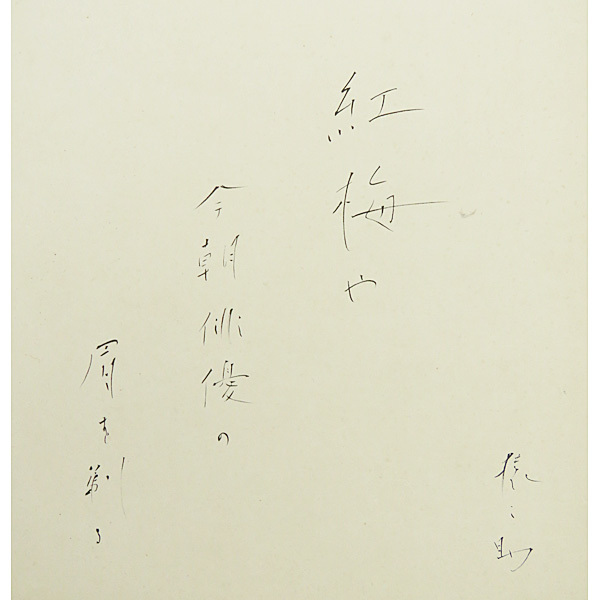 紅梅や
今朝俳優の
眉を剃る
猿之助